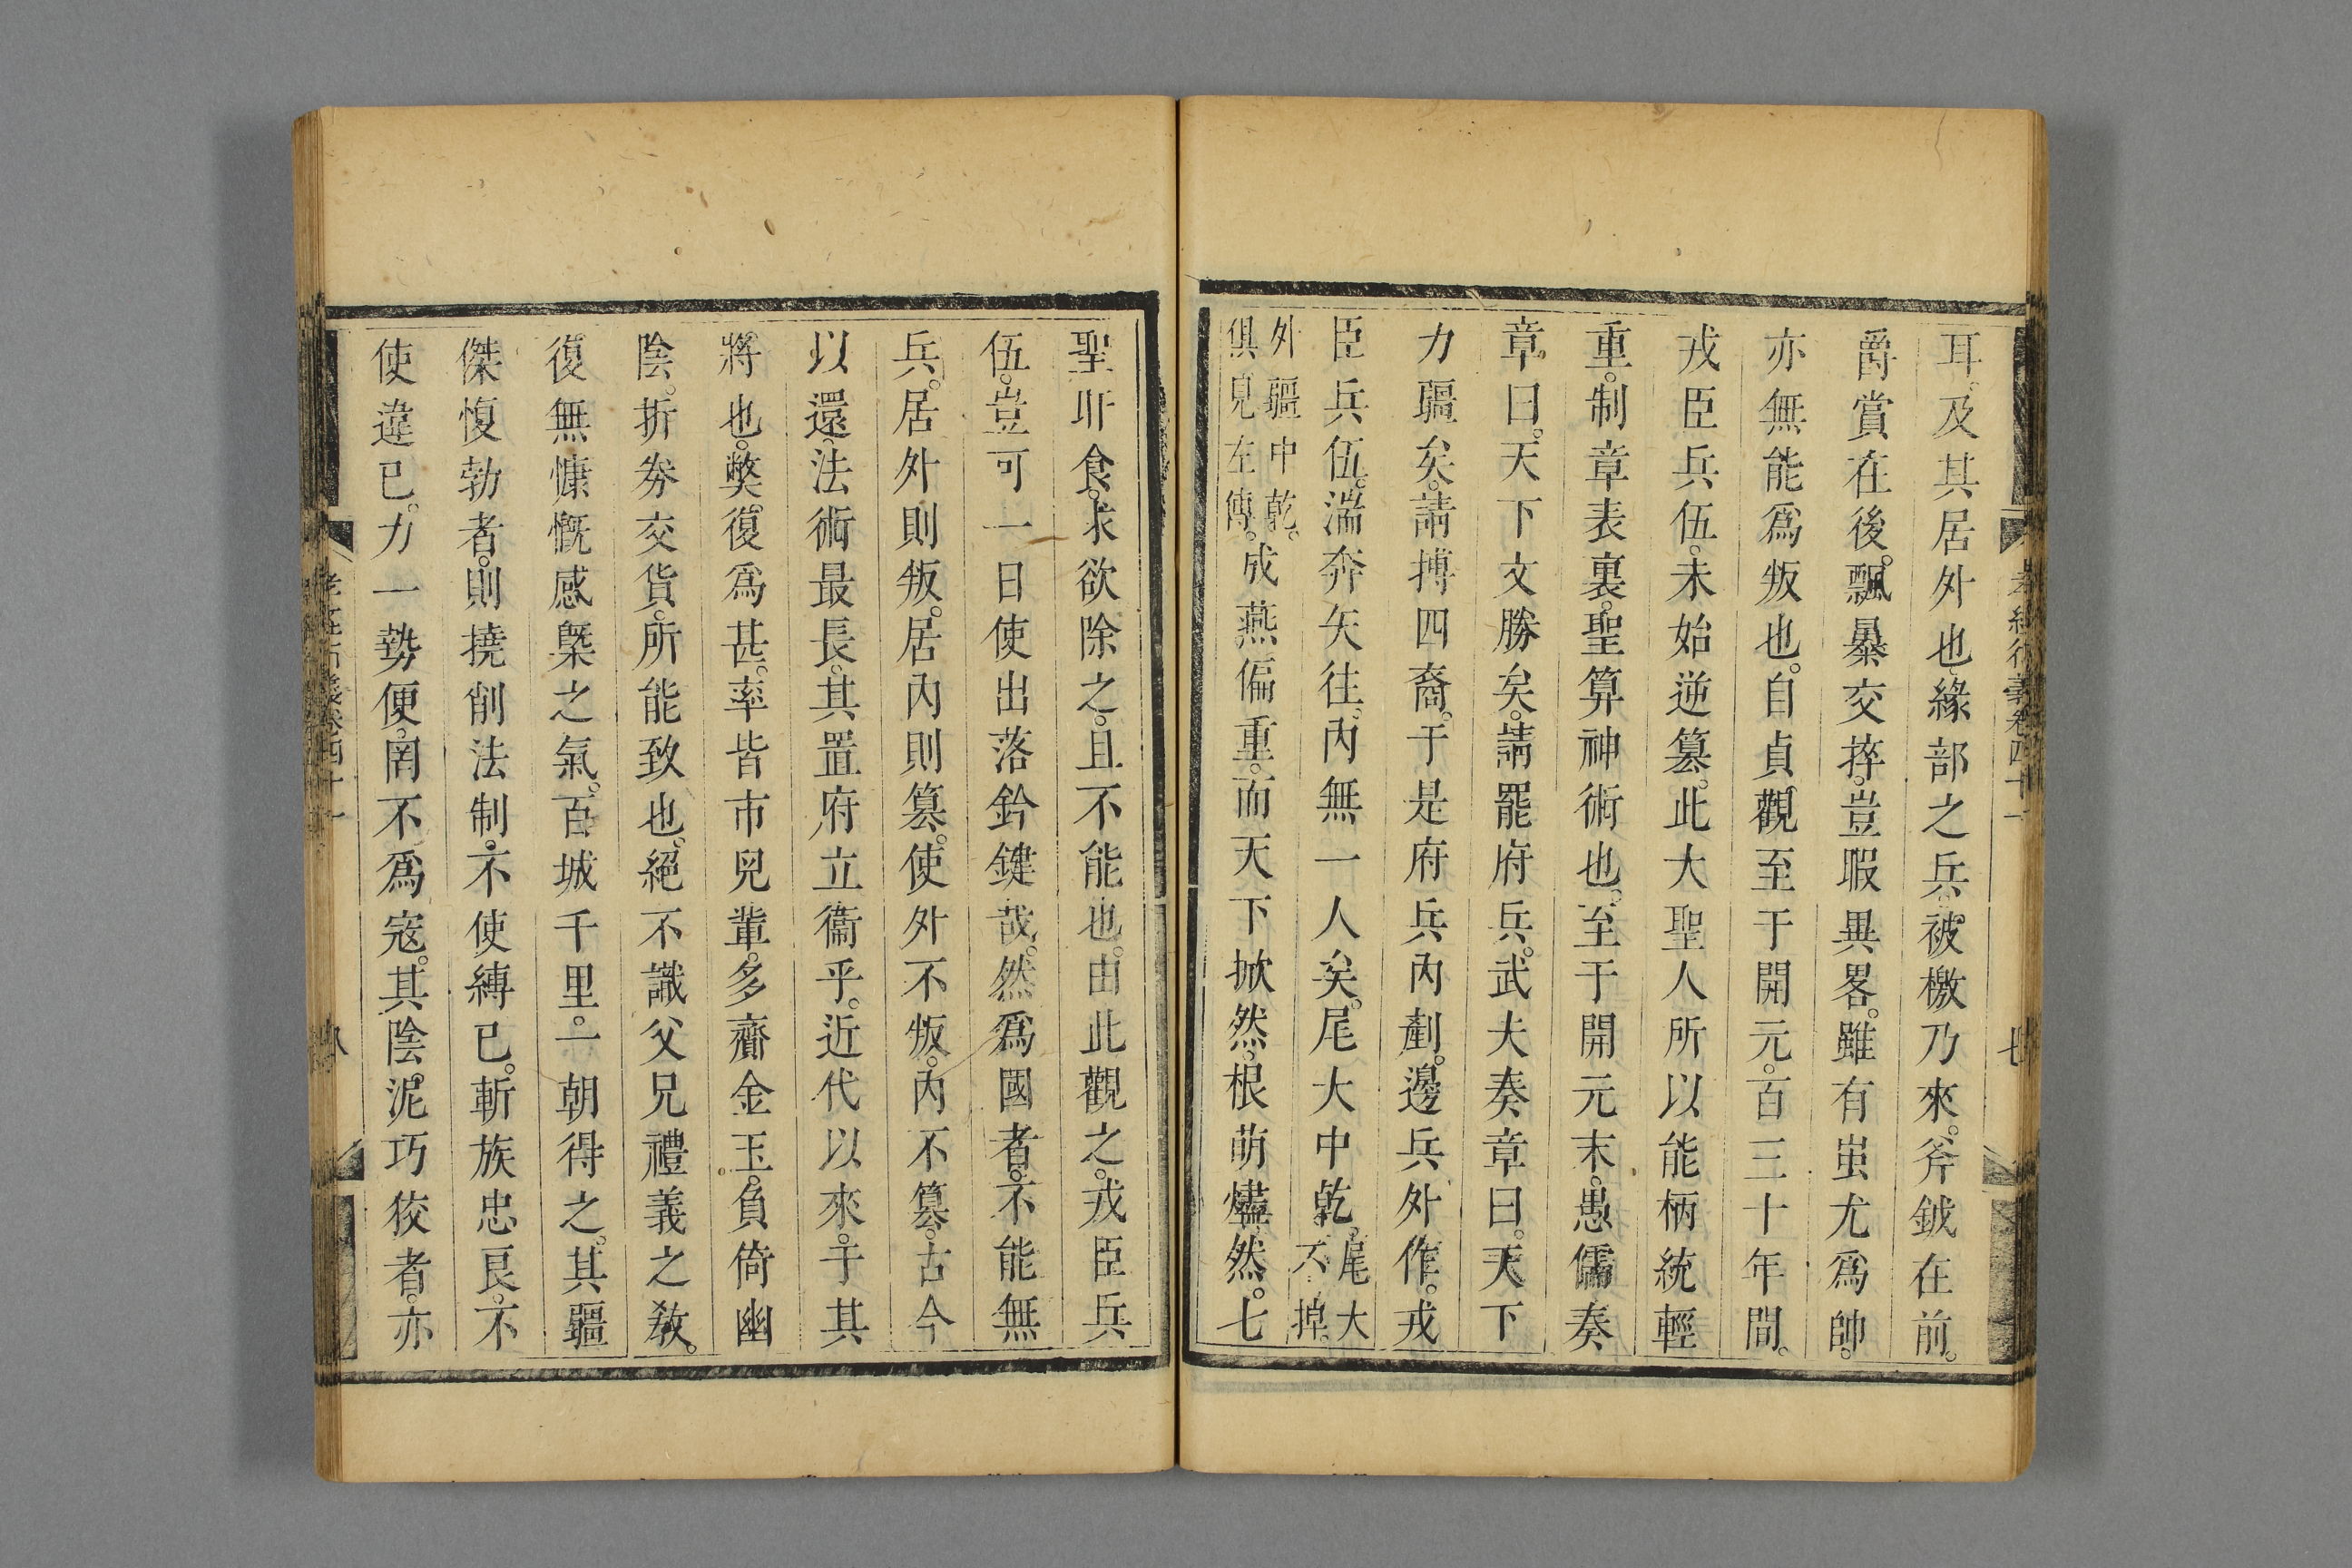 耳。及其居外也。緣部之兵。被檄乃來。斧鉞在前。
爵賞在後。飄暴交捽。豈暇異畧。雖有蚩尤爲帥。
亦無能爲叛也。自貞觀至于開元。百三十年間。
戎臣兵伍。未始逆篡。此大聖人所以能柄統輕
重。制章表裏。聖算神術也。至于開元末。愚儒奏
章。曰。天下文勝矣。請罷府兵。武夫奏章曰。天下
力疆矣。請搏四裔。于是府兵內剷。邊兵外作。戎
臣兵伍。湍奔矢往。內無一人矣。尾大中乾。尾大不掉。
外疆中乾。俱見左傳。成燕偏重。而天下掀然。根萌燼然。七
聖旰食。求欲除之。且不能也。由此觀之。戎臣兵
伍。豈可一日使出落鈐鍵哉。然爲國者。不能無
兵。居外則叛。居內則篡。使外不叛。內不篡。古今
以還。法術最長。其置府立衞乎。近代以來。于其
將也。獘復爲甚。率皆市兒輩。多齎金玉。負倚幽
陰。折劵交貨。所能致也。絕不識父兄禮義之敎。
復無慷慨感槩之氣。百城千里。一朝得之。其疆
傑愎勃者。則撓削法制。不使縛已。斬族忠良。不
使違已。力一勢便。罔不爲寇。其陰泥巧狡者。亦